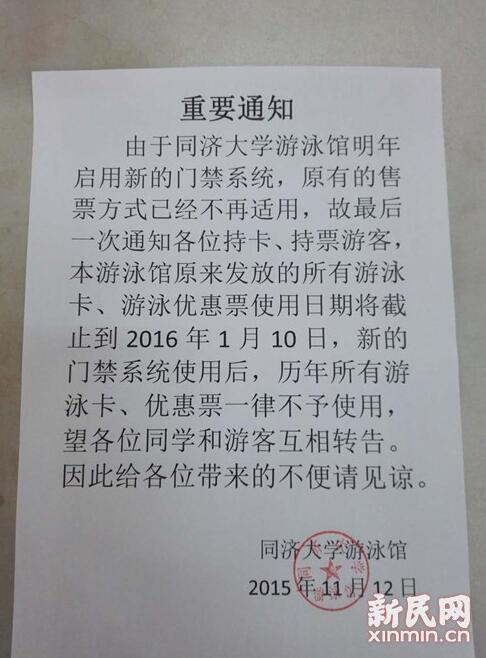 重要通知
由于同济大学游泳馆明年
启用新的门禁系统，原有的售
票方式已经不再适用，故最后
一次通知各位持卡、持票游客，
本游泳馆原来发放的所有游泳
卡、游泳优惠票使用日期将截
止到 2016 年 1 月 10 日，新的
门禁系统使用后，历年所有游
泳卡、优惠票一律不予使用，
望各位同学和游客互相转告。
因此给各位带来的不便请见谅。
同济大学游泳馆
2015 年 11 月 12 日
新民网
xinmin.cn